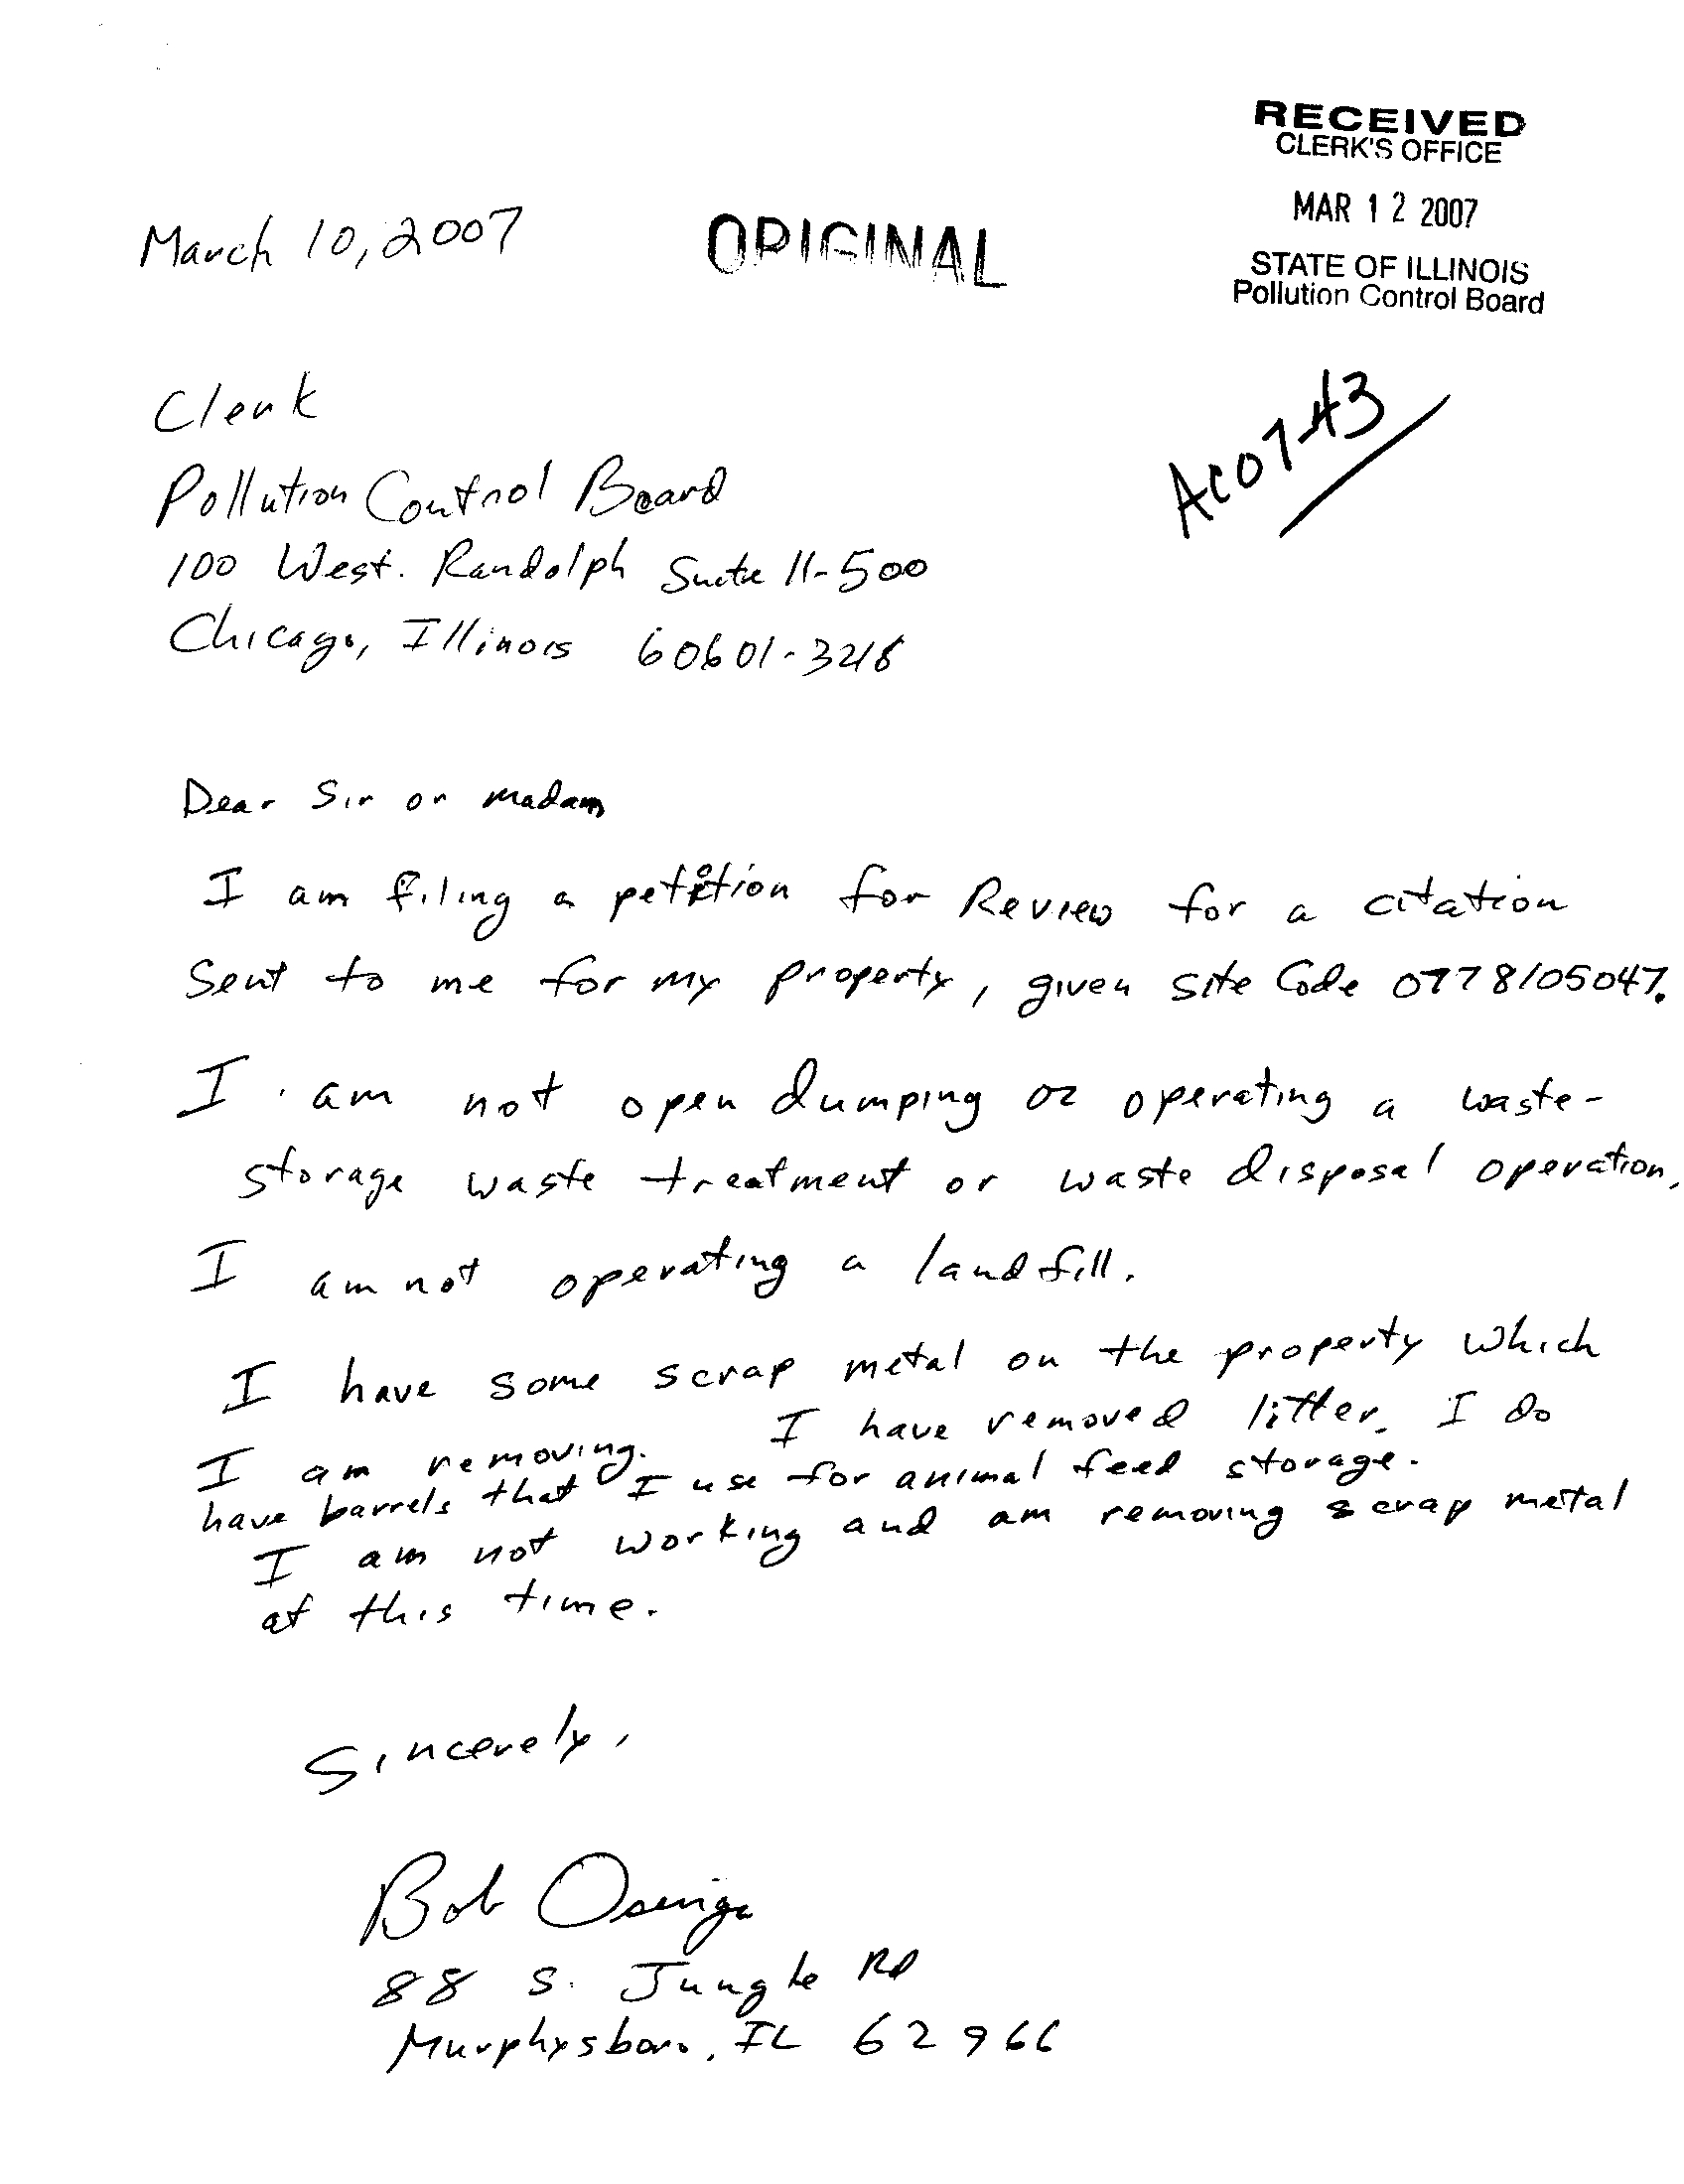 RECEIVED
CLERK'S OFFICE
MAR 12 2007
STATE OF ILLINOIS
Pollution Control Board
March 10, 2007
ORIGINAL
AC07-43
Clerk
Pollution Control Board
100 West. Randolph Suite 11-500
Chicago, Illinois 60601-3218
Dear Sir or Madam,
I am filing a petition for Review for a citation
Sent to me for my property, given Site Code 0778105047.
I am not open dumping or operating a waste-
storage waste treatment or waste disposal operation,
I am not operating a landfill.
I have some scrap metal on the property which
I am removing. I have removed litter. I do
have barrels that I use for animal feed storage.
I am not working and am removing scrap metal
at this time.
Sincerely,
Bob Osenga
88 S. Jungle Rd
Murphysboro, IL 62966